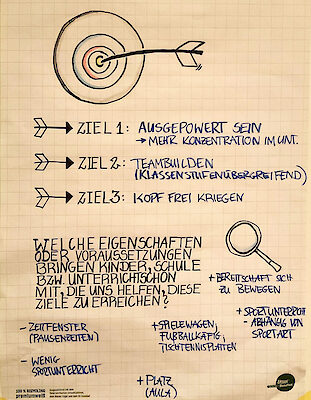 ZIEL 1: AUSGEPOWERT SEIN
→ MEHR KONZENTRATION IM UNT.
ZIEL 2: TEAMBUILDEN
(KLASSENSTUFENÜBERGREIFEND)
ZIEL 3: KOPF FREI KRIEGEN
WELCHE EIGENSCHAFTEN
ODER VORAUSSETZUNGEN
BRINGEN KINDER, SCHULE
BZW. UNTERRICHT SCHON
MIT, DIE UNS HELFEN, DIESE
ZIELE ZU ERREICHEN?
+ BEREITSCHAFT SICH
ZU BEWEGEN
+ SPORTUNTERRICHT
- ABHÄNGIG VON
SPORTART
- ZEITFENSTER
(PAUSENZEITEN)
- WENIG
SPORTUNTERRICHT
+ SPIELEWAGEN,
FUßBALLKÄFIG,
TISCHTENNISPLATTEN
+ PLATZ
(AULA)
100% RECYCLING
premiumweiß